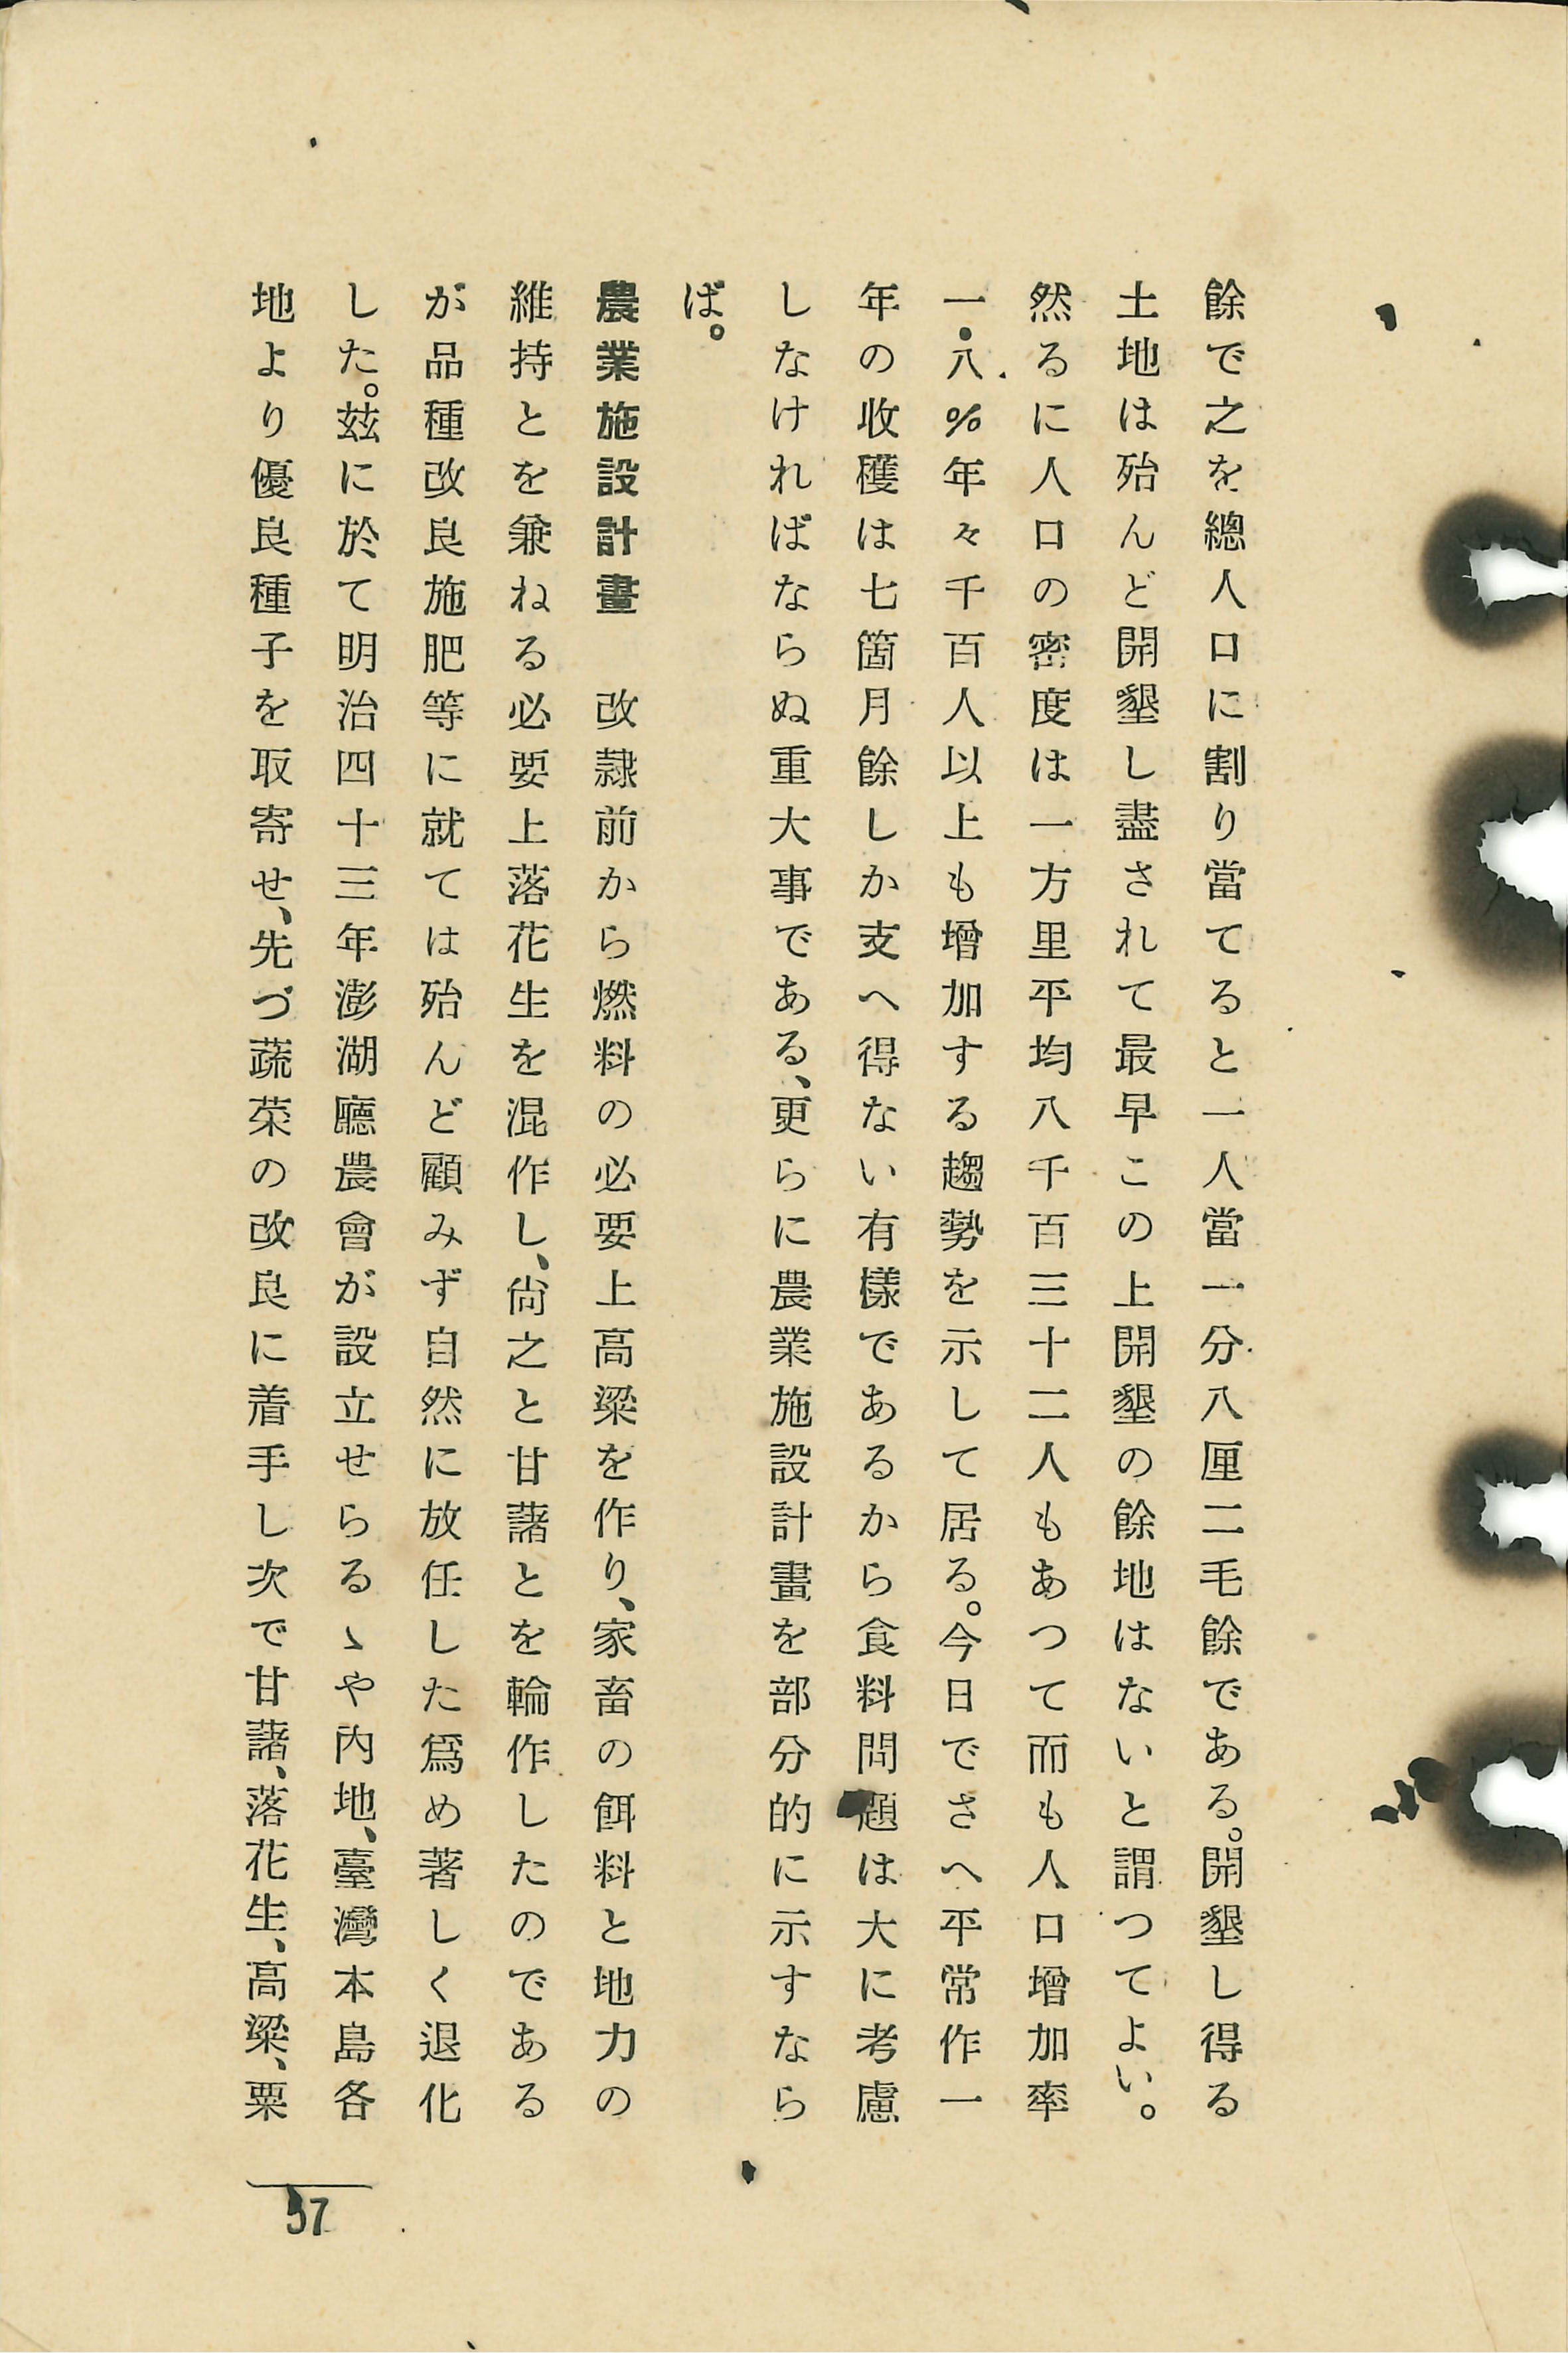 餘で之を總人口に割り當てると一人當一分八厘二毛餘である。開墾し得る
土地は殆んど開墾し盡されて最早この上開墾の餘地はないと謂つてよい。
然るに人口の密度は一方里平均八千百三十二人もあつて而も人口增加率
一・八％年々千百人以上も增加する趨勢を示して居る。今日でさへ平常作一
年の收穫は七箇月餘しか支へ得ない有樣であるから食料問題は大に考慮
しなければならぬ重大事である、更らに農業施設計畫を部分的に示すなら
ば。
農業施設計畫　改隷前から燃料の必要上高粱を作り、家畜の餌料と地力の
維持とを兼ねる必要上落花生を混作し、尙之と甘藷とを輪作したのである
が品種改良施肥等に就ては殆んど顧みず自然に放任した爲め著しく退化
した。玆に於て明治四十三年澎湖廳農會が設立せらるゝや內地、臺灣本島各
地より優良種子を取寄せ、先づ蔬菜の改良に着手し次で甘藷、落花生、高粱、粟
37